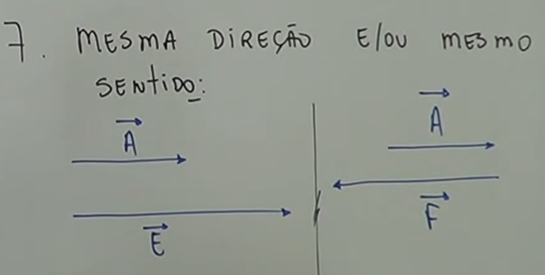 7. MESMA DIREÇÃO E/OU MESMO
SENTIDO:
A
A
E
F